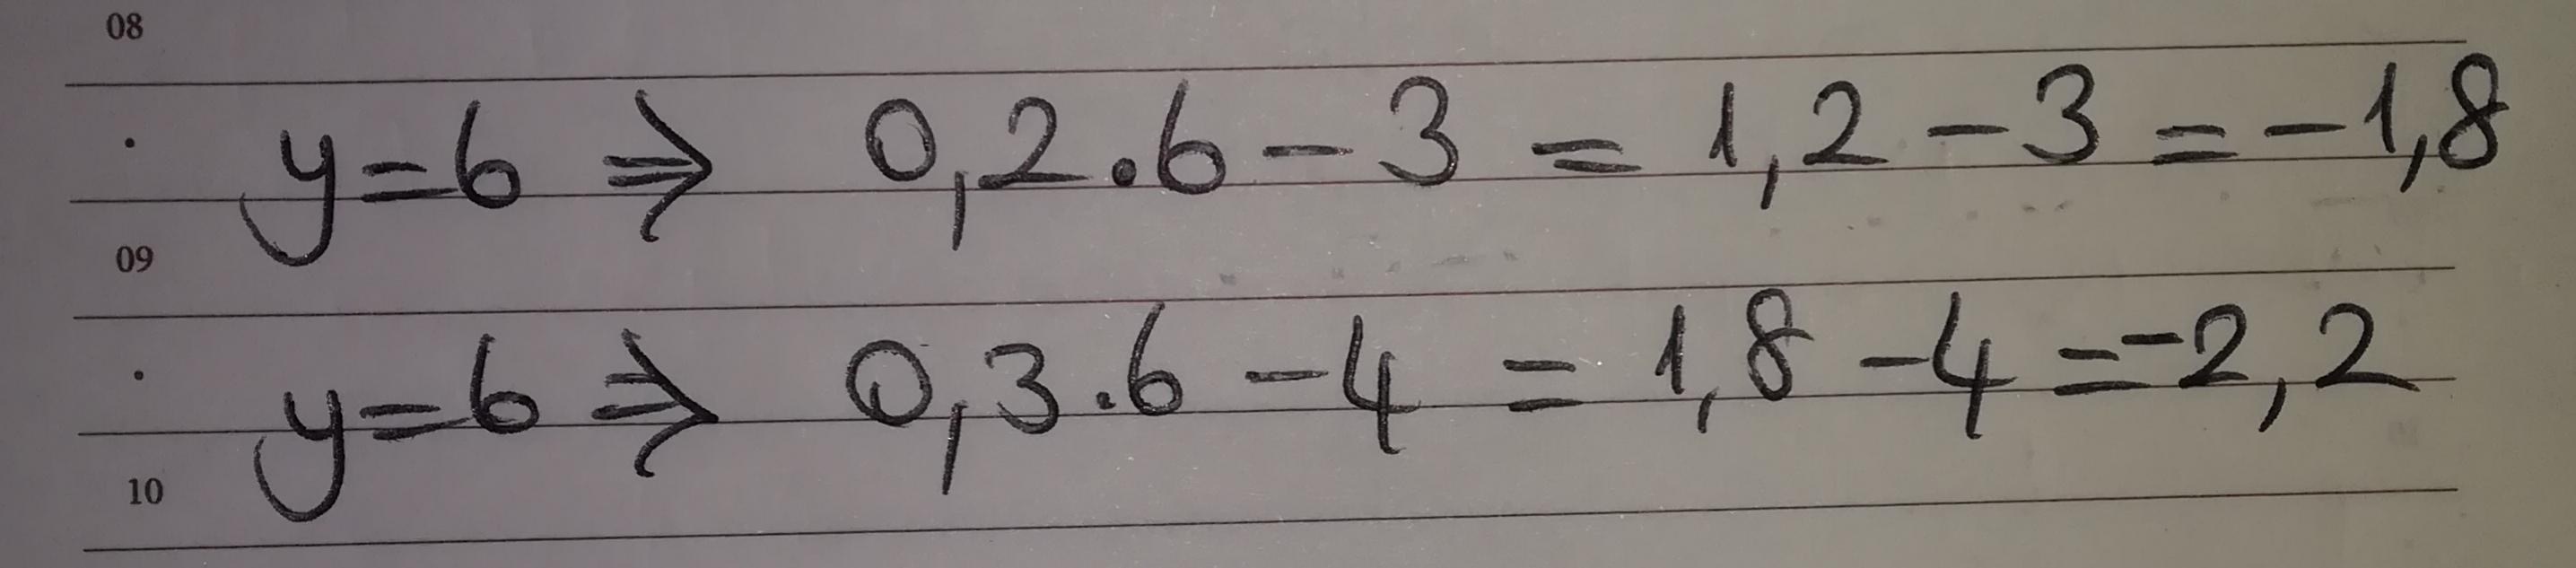 08
y=6 ⇒ 0,2.6-3 = 1,2-3=-1,8
09
y=6 ⇒ 0,3.6-4 = 1,8-4=-2,2
10